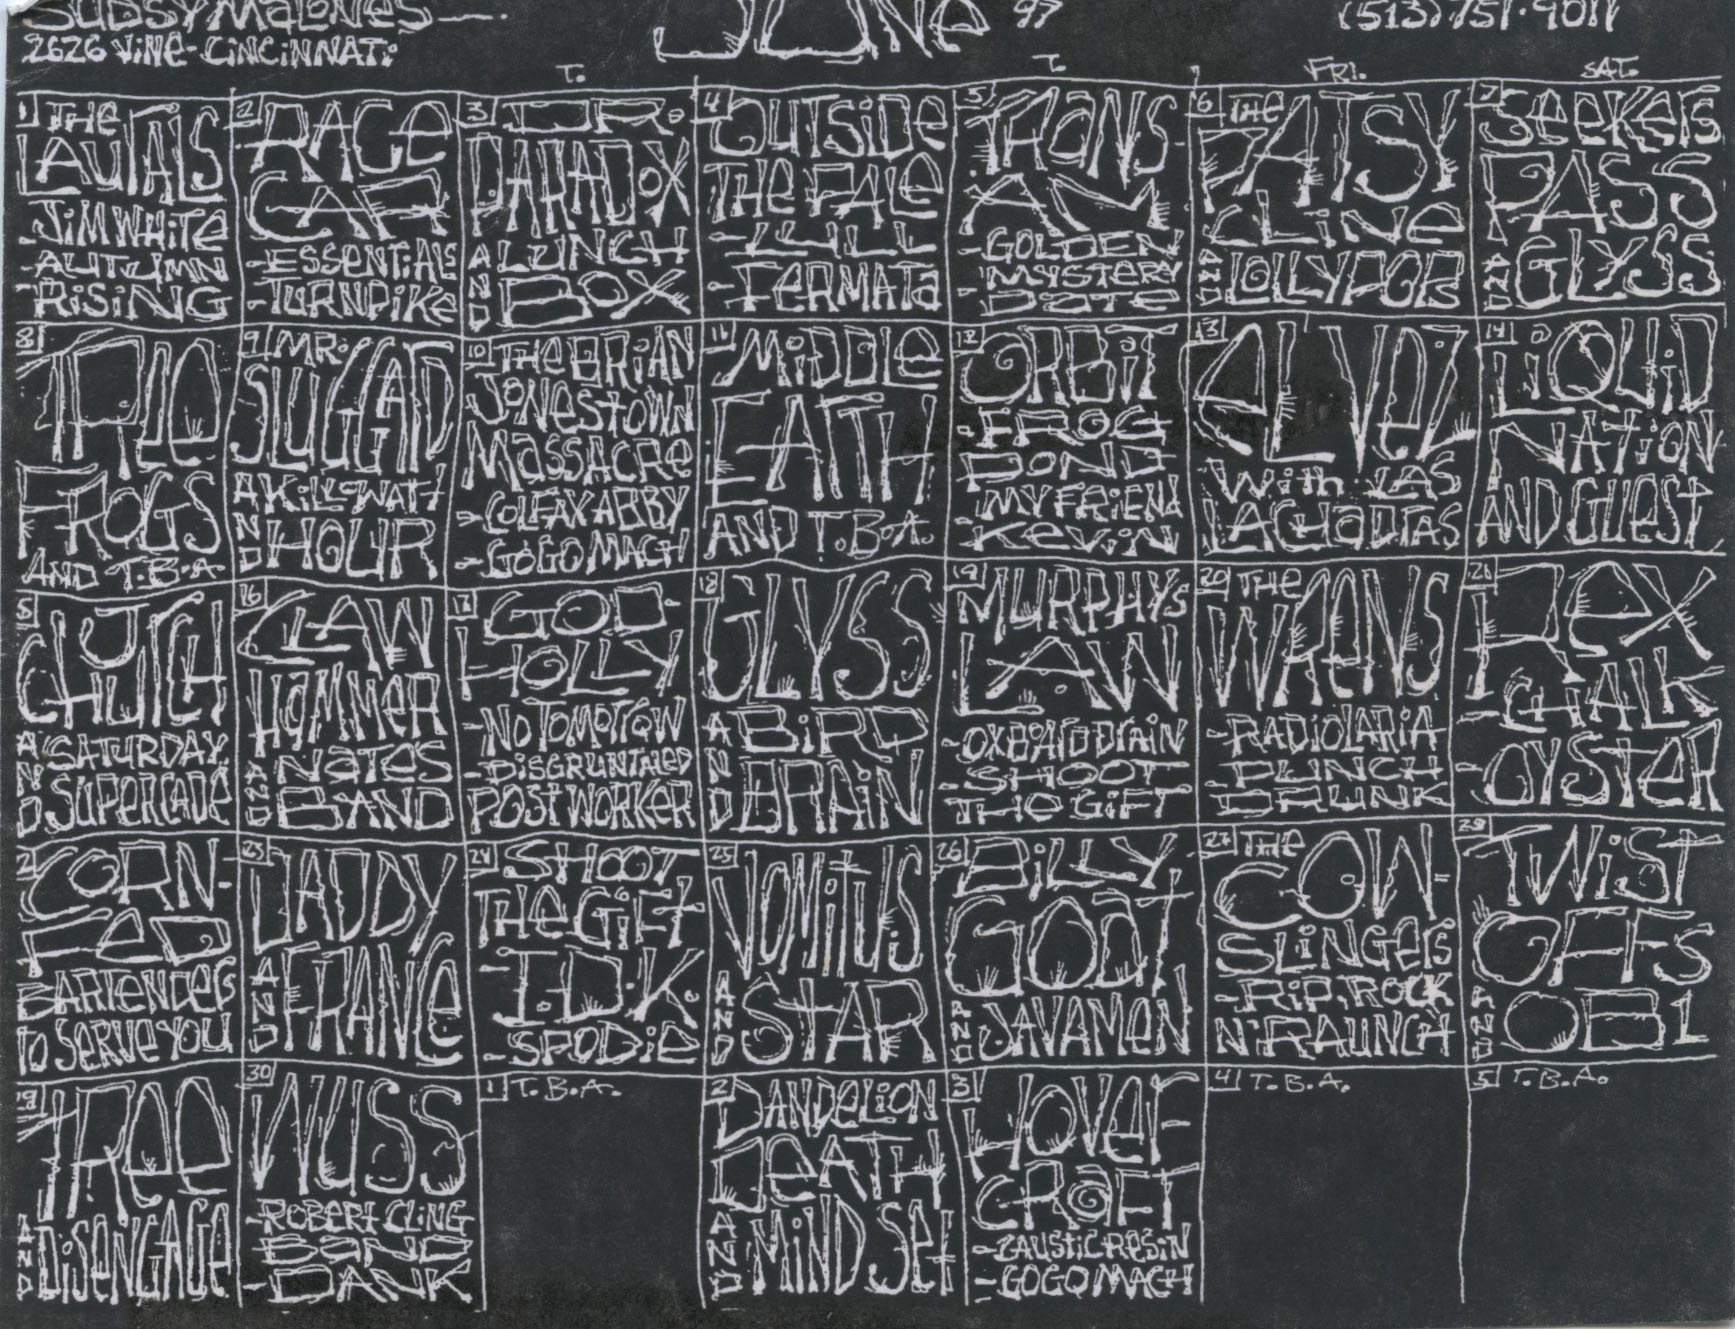 SUDSY MALONES
2626 VINE - CINCINNATI
JUNE 97
(513) 751-9011
T. T. FRI. SAT.
1 THE
LAURALS
JIM WHITE
-AUTUMN
-RISING
2 RACE
CAR
-ESSENTIALS
-TURNPIKE
3 DR.
PARADOX
AND LUNCH
BOX
4 OUTSIDE
THE PALE
-LULL
-FERMATA
5 TRANS
AM
-GOLDEN
-MYSTERY
-DATE
6 THE
PATSY
CLINE
AND LOLLYPOPS
7 SEEKERS
PASS
AND GLYSS
8
FROGS
AND T.B.A.
9 MR.
SLUGGARD
AND A KILLOWATT
HOUR
10 THE BRIAN
JONESTOWN
MASSACRE
-COLFAX ABBY
-GOGO MACH
11 MIDDLE
EARTH
AND T.B.A.
12 ORBIT
-FROG
POND
-MY FRIEND
KEVIN
13 EL VEZ
WITH LAS
LACHAUTAS
14 LIQUID
NATION
AND GUEST
15 CHURCH
AND SATURDAY
SUPERCADE
16 CLAW
HAMMER
AND NATES
BAND
17 GOD
HOLLY
-NO TOMORROW
-DISGRUNTALED
POST WORKER
18 GLYSS
AND BIRD
BRAIN
19 MURPHYS
LAW
-OXBARODRAIN
-SHOOT
THE GIFT
20 THE
WRENS
-RADIOLARIA
-PUNCH
DRUNK
21 REX
-CHALK
-OYSTER
22 CORN-
FED
BARTENDERS
TO SERVE YOU
23 DADDY
AND FRANCE
24 SHOOT
THE GIFT
-I.D.K.
-SPODIE
25 VOMITUS
AND STAR
26 BILLY
GOAT
AND JAVAMEN
27 THE
COW-
SLINGERS
-RIP, ROCK
N' RAUNCH
28 TWIST
OFFS
AND OB1
29 TREE
AND DISENGAGE
30 WUSS
-ROBERT CLING
BAND
-DANK
1 T.B.A.
2 DANDELION
DEATH
AND MIND SET
3 HOVER
CRAFT
-CAUSTIC RESIN
-GOGO MACH
4 T.B.A.
5 T.B.A.